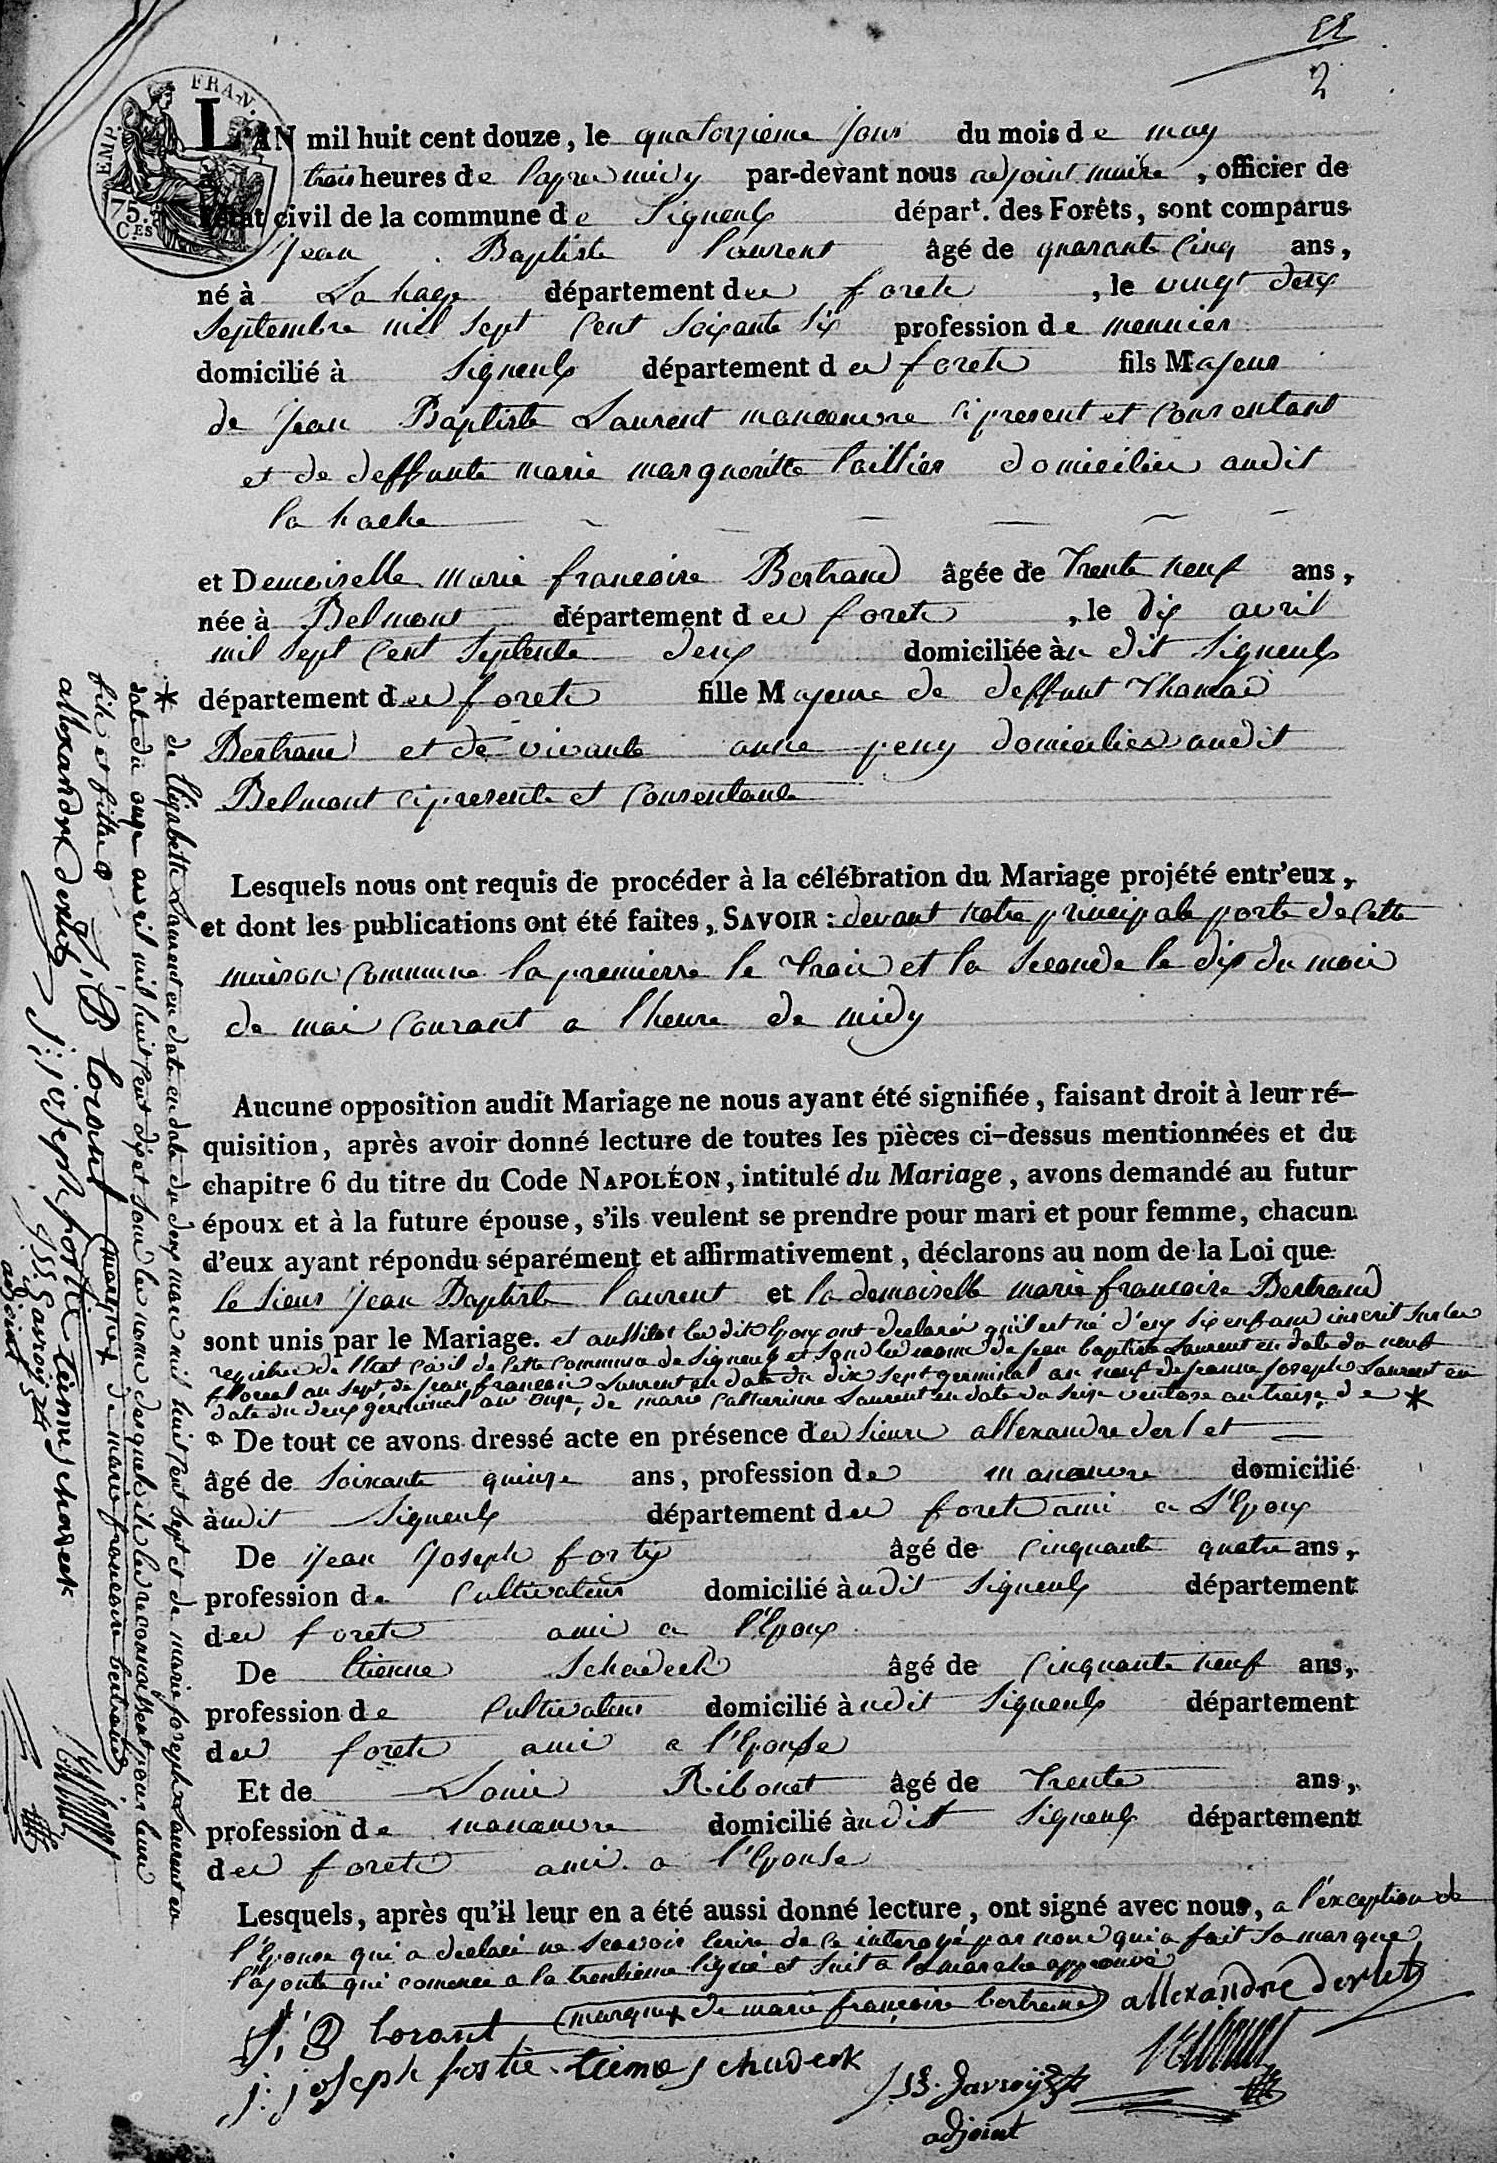 22
2
EMP. FRAN.
75. C.ES
LAN mil huit cent douze, le quatorzieme jour du mois de may
trois heures de l'apres midy par-devant nous adjoint maire, officier de
l'état civil de la commune de Signeulx départ. des Forêts, sont comparus
Jean Baptiste Laurent âgé de quarante cinq ans,
né à La hage département des forets, le vingt deux
Septembre mil sept Cent soixante six profession de meunier
domicilié à Signeulx département des forets fils Majeur
de Jean Baptiste Laurent manoeuvre ci present et Consentant
et de deffunte marie margueritte taillier domicilies audit
la hache
et Demoiselle marie francoise Bertrand âgée de Trente neuf ans,
née à Belmont département des forets, le dix avril
mil sept Cent septente deux domiciliée àu dit Signeulx
département des forets fille Majeure de deffunt Thomas
Bertrand et de vivante anne peny domicilies audit
Belmont ci presente et Consentante
Lesquels nous ont requis de procéder à la célébration du Mariage projété entr'eux,
et dont les publications ont été faites, SAVOIR : devant notre principale porte de Cette
maison Commune la premierre le trois et la seconde le dix du mois
de mai Courant a l'heure de midy
Aucune opposition audit Mariage ne nous ayant été signifiée, faisant droit à leur ré-
quisition, après avoir donné lecture de toutes les pièces ci-dessus mentionnées et du
chapitre 6 du titre du Code NAPOLÉON, intitulé du Mariage, avons demandé au futur
époux et à la future épouse, s'ils veulent se prendre pour mari et pour femme, chacun
d'eux ayant répondu séparément et affirmativement, déclarons au nom de la Loi que
le sieur Jean Baptiste laurent et la demoiselle marie francoise Bertrand
sont unis par le Mariage. et aussitot lesdits Epoux ont declarés qu'il est né d'eux six enfans inscrit sur les
registres de l'Etat Civil de Cette Commune de Signeulx et sous les noms de jean baptiste Laurent en date du neuf
floreal an sept, de jean francois Laurent en date du dix sept germinal an neuf de jeanne joseph Laurent en
date du deux germinal an onze, de marie Catherinne Laurent en date du seize ventose an treize, de *
De tout ce avons dressé acte en présence des sieurs allexandre derlet
âgé de soixante quinze ans, profession de manoeuvre domicilié
àudit Signeulx département des forets ami a l'Epoux
De Jean Joseph forty âgé de Cinquante quatre ans,
profession de Cultivateur domicilié àudit Signeulx département
des forets ami a l'Epoux
De Etienne Schadeck âgé de Cinquante neuf ans,
profession de Cultivateur domicilié àudit Signeulx département
des forets ami a l'Epouse
Et de Louis Ribonet âgé de Trente ans,
profession de manoeuvre domicilié àudit Signeulx département
des forets ami a l'Epouse
Lesquels, après qu'il leur en a été aussi donné lecture, ont signé avec nous, a l'exception de
l'Epouse qui a declaré ne scavoir Ecrire de ce interogé par nous qui a fait sa marque
l'ajoute qui comence a la trentieme ligne et suit a la marche approuvé
J, B lorant marque x de marie françoise bertrand allexandre derlet
j: joseph fortie tienne schadeck
adjoint
* de Elizabette Laurent en date en date du deux mars mil huit Cent sept et de marie joseph Laurent en
date du onze avril mil huit Cent dix et sous les noms desquels ils les reconnaissent pour leurs
fils et filles
J, B lorant marque x de marie francoise bertrand
allexandre derlet j: joseph fortie tienne schadeck
adjoint